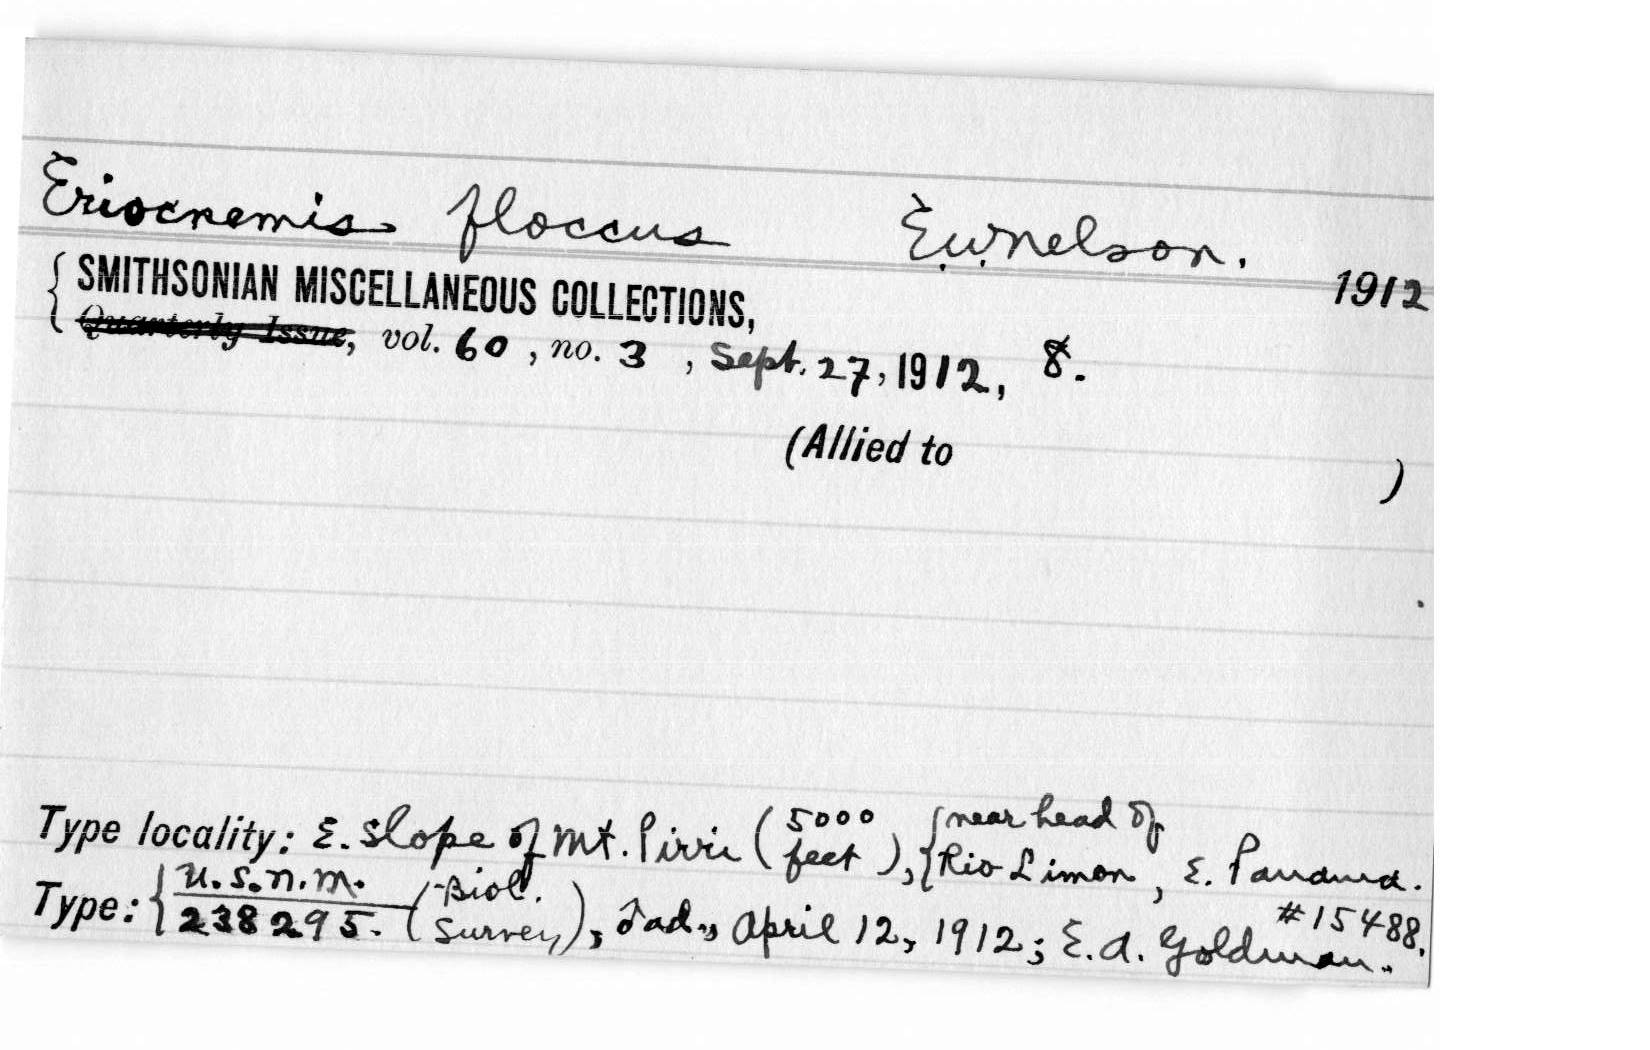 Eriocnemis floccus E.W. Nelson. 1912
SMITHSONIAN MISCELLANEOUS COLLECTIONS,
Quarterly Issue, vol. 60, no. 3, Sept. 27, 1912, 8.
(Allied to )
Type locality: E. slope of Mt. Pirri (5000 feet), {near head of Rio Limon, E. Panama.
Type: {U.S.N.M. 238295. (Biol. Survey), ♂ ad., April 12, 1912; E. A. Goldman. #15488.